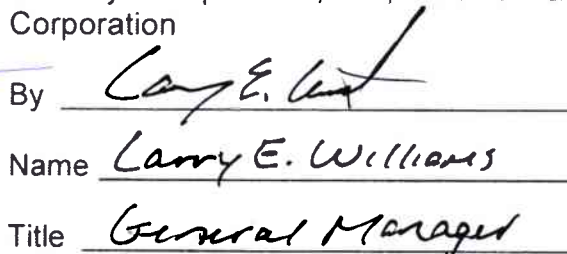 Corporation
By Larry E.
Name Larry E. Williams
Title General Manager